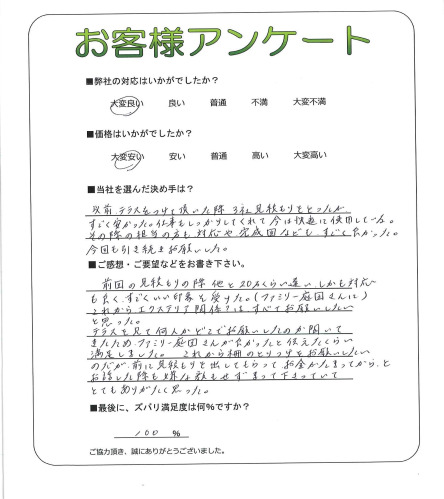 お客様アンケート
■弊社の対応はいかがでしたか?
大変良い 良い 普通 不満 大変不満
■価格はいかがでしたか?
大変安い 安い 普通 高い 大変高い
■当社を選んだ決め手は?
以前テラスをつけて頂いた際3社見積もりをとったが
すごく安かった。仕事もしっかりしてくれて今は快適に使用している。
その際の担当の方も対応や完成図などもすごく良かった。
今回も引き続きお願いした。
■ご感想・ご要望などをお書き下さい。
前回の見積もりの際他と20万くらい違い、しかも対応
も良く、すごくいい印象を受けた。(ファミリー庭園さんに)
これからエクステリア関係?は、すべてお願いしたい
と思った。
テラスを見て何人かどこでお願いしたのか聞いて
きたため、ファミリー庭園さんが良かったと伝えたくらい
満足しました。これから柵のとりつけをお願いしたい
のだが、前に見積もりを出してもらってお金がたまってから、と
お話した際も嫌な顔もせずまって下さっていて
とてもありがたく思った。
■最後に、ズバリ満足度は何%ですか?
100 %
ご協力頂き、誠にありがとうございました。